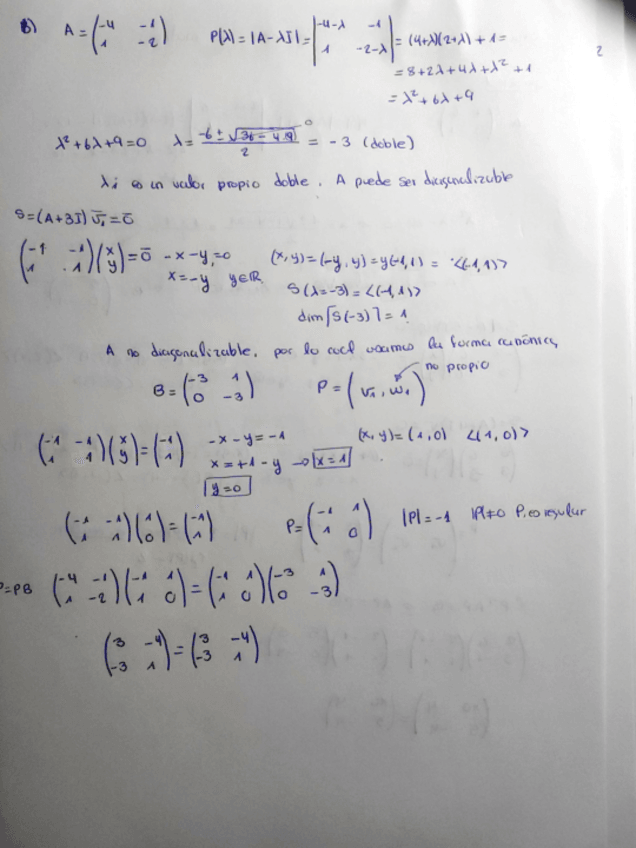 b) A = (-4 -1; 1 -2) P(λ) = |A-λI| = |-4-λ -1; 1 -2-λ| = (4+λ)(2+λ) + 1 =
2
= 8+2λ+4λ+λ² + 1
= λ²+6λ+9
λ²+6λ+9=0 λ = (-6 ± √(36-4·9))/2 = -3 (doble)
0
λi es un valor propio doble. A puede ser diagonalizable
S=(A+3I) v̄₁ = ō
(-1 -1; 1 1)(x; y) = ō -x-y=0 (x,y)=(-y,y)=y(-1,1) = <(-1,1)>
x=-y y∈ℝ
S(λ=-3)=<(-1,1)>
dim[S(-3)] = 1
A no diagonalizable, por lo cual usamos la forma canónica
B = (-3 1; 0 -3) P = (v₁, w₁) no propio
(-1 -1; 1 1)(x; y) = (-1; 1) -x-y=-1 (x,y)=(1,0) <(1,0)>
x=+1-y → x=1
y=0
(-1 -1; 1 1)(1; 0) = (-1; 1) P=(-1 1; 1 0) |P|=-1 |P|≠0 P es regular
=PB (-4 -1; 1 -2)(-1 1; 1 0) = (-1 1; 1 0)(-3 1; 0 -3)
(3 -4; -3 1) = (3 -4; -3 1)